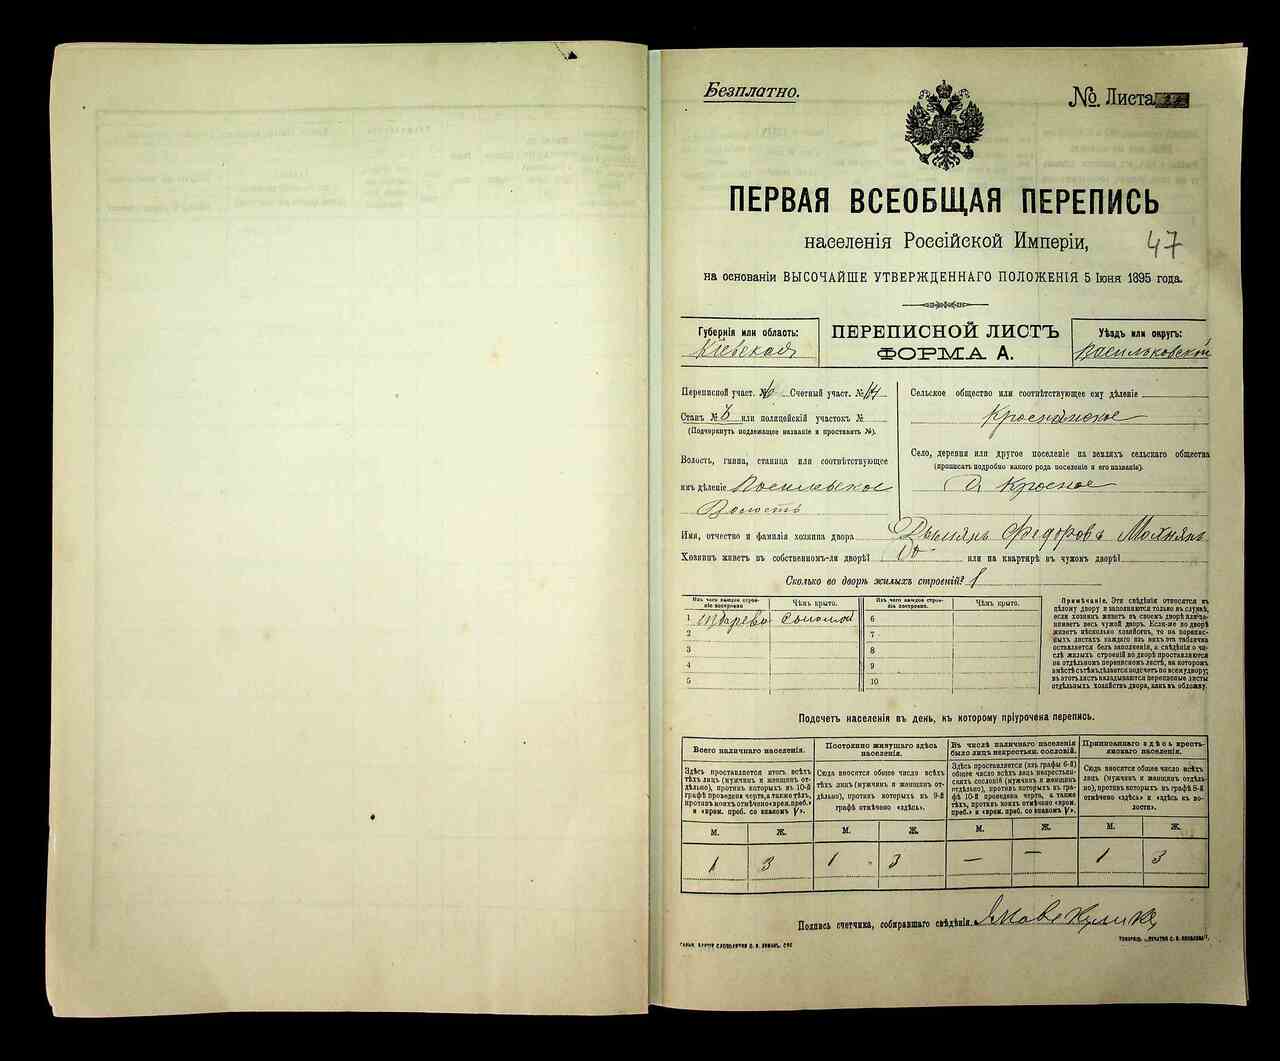 Безплатно.
№ Листа
ПЕРВАЯ ВСЕОБЩАЯ ПЕРЕПИСЬ
населенія Россійской Имперіи,
47
на основаніи ВЫСОЧАЙШЕ УТВЕРЖДЕННАГО ПОЛОЖЕНІЯ 5 Іюня 1895 года.
Губернія или область:
Кіевская
ПЕРЕПИСНОЙ ЛИСТЪ
ФОРМА А.
Уѣздъ или округъ:
Васильковскій
Переписной участ. № Счетный участ. № 14
Станъ № 3 или полицейскій участокъ №
(Подчеркнуть подлежащее названіе и проставить №).
Волость, гмина, станица или соотвѣтствующее
имъ дѣленіе
Волость
Сельское общество или соотвѣтствующее ему дѣленіе
Село, деревня или другое поселеніе на земляхъ сельскаго общества
(прописать подробно какого рода поселеніе и его названіе).
Красное
Имя, отчество и фамилія хозяина двора Демьянъ Федоровъ
Хозяинъ живетъ въ собственномъ-ли дворѣ? или на квартирѣ въ чужомъ дворѣ?
Сколько во дворѣ жилыхъ строеній? 1
Изъ чего каждое строеніе построено.
Чѣмъ крыто.
Изъ чего каждое строеніе построено.
Чѣмъ крыто.
1 соломой 6
2 7
3 8
4 9
5 10
Примѣчаніе. Эти свѣдѣнія относятся къ
цѣлому двору и заполняются только въ случаѣ,
если хозяинъ живетъ въ своемъ дворѣ или занимаетъ
весь чужой дворъ. Если-же во дворѣ
живетъ нѣсколько хозяйствъ, то на переписныхъ
листахъ каждаго изъ нихъ эта табличка
оставляется безъ заполненія, а свѣдѣнія о числѣ
жилыхъ строеній во дворѣ проставляются
на отдѣльномъ переписномъ листѣ, на которомъ
вмѣстѣ съ тѣмъ дѣлается подсчетъ по всему двору;
въ этотъ листъ вкладываются переписные листы
отдѣльныхъ хозяйствъ двора, какъ въ обложку.
Подсчетъ населенія въ день, къ которому пріурочена перепись.
Всего наличнаго населенія.
Постоянно живущаго здѣсь населенія.
Въ числѣ наличнаго населенія было лицъ некрестьян. сословій.
Приписаннаго здѣсь крестьянскаго населенія.
Здѣсь проставляется итогъ всѣхъ тѣхъ лицъ (мужчинъ и женщинъ отдѣльно), противъ которыхъ въ 10-й графѣ проведена черта, а также тѣхъ, противъ коихъ отмѣчено «врем. преб.» и «врем. преб. со знакомъ V».
Сюда вносится общее число всѣхъ тѣхъ лицъ (мужчинъ и женщинъ отдѣльно), противъ которыхъ въ 9-й графѣ отмѣчено «здѣсь».
Здѣсь проставляется (изъ графы 6-й) общее число всѣхъ лицъ некрестьянскихъ сословій (мужчинъ и женщинъ отдѣльно), противъ которыхъ въ графѣ 10-й проведена черта, а также тѣхъ, противъ коихъ отмѣчено «врем. преб.» и «врем. преб. со знакомъ V».
Сюда вносится общее число всѣхъ лицъ (мужчинъ и женщинъ отдѣльно), противъ которыхъ въ графѣ 8-й отмѣчено «здѣсь» и «здѣсь къ волости».
М. Ж. М. Ж. М. Ж. М. Ж.
1 3 1 3 — — 1 3
Подпись счетчика, собиравшаго свѣдѣнія.